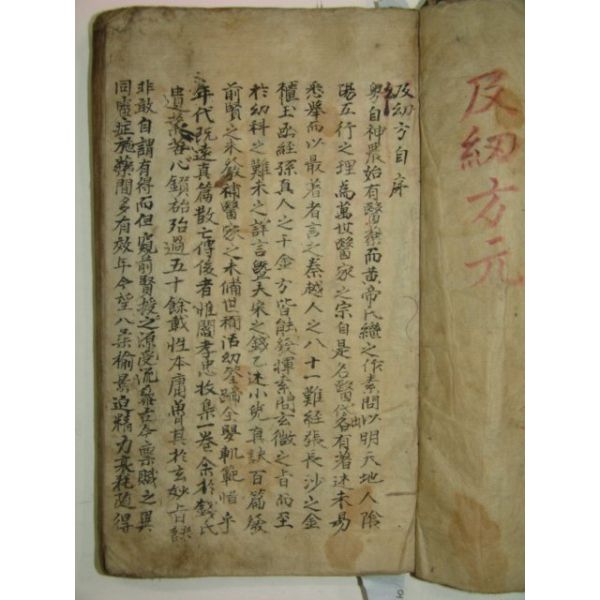 及幼方元
及幼方自序
粤自神農始有醫藥而黄帝氏繼之作素問以明天地人陰
陽五行之理為萬世醫家之宗自是名醫代各有著述未易
悉擧而以最著者言之秦越人之八十一難經張長沙之金
櫃玉函經孫真人之千金方皆能發揮素問玄微之旨而至
於幼科之難未之詳言曁夫宋之錢乙述小兒真訣百篇發
前賢之未發補醫家之未備世稱活幼筌蹄全嬰軌範惜乎
年代既遠真篇散亡傳後者惟閻孝忠收集一卷余於錢氏
遺藁若心鑚 殆過五十餘載性本庸魯其於玄妙旨訣
非敢自謂有得而但窺前賢授之源受流 古今禀賦之異
同審症施藥間多有效年今望八桑榆景迫精力衰耗隨得